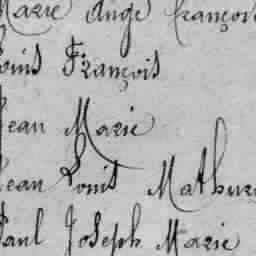 Marie Ange François
Louis François
Jean Marie
Jean Louis Mathuri
Paul Joseph Marie